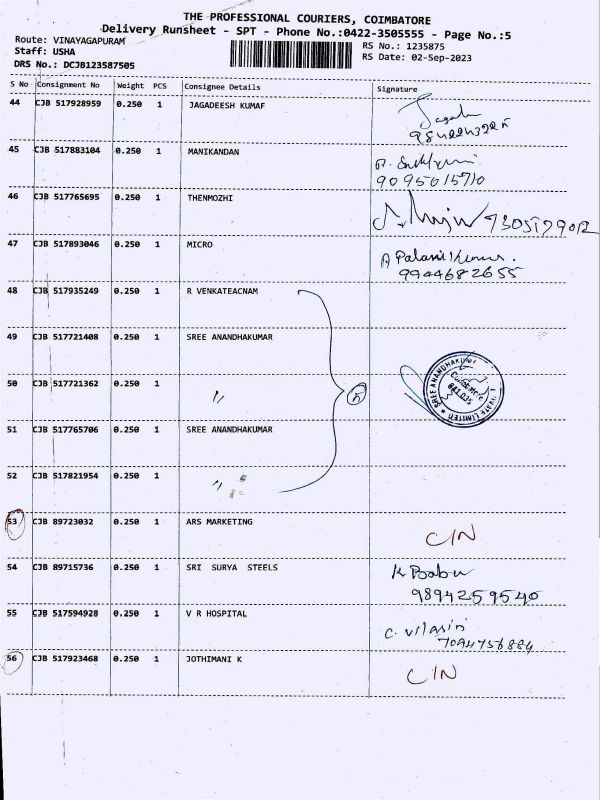 THE PROFESSIONAL COURIERS, COIMBATORE
Delivery Runsheet - SPT - Phone No.:0422-3505555 - Page No.:5
Route: VINAYAGAPURAM
Staff: USHA
DRS No.: DCJB123587505
RS No.: 1235875
RS Date: 02-Sep-2023
S No Consignment No Weight PCS Consignee Details Signature
44 CJB 517928959 0.250 1 JAGADEESH KUMAF
45 CJB 517883104 0.250 1 MANIKANDAN
9095015710
46 CJB 517765695 0.250 1 THENMOZHI
47 CJB 517893046 0.250 1 MICRO
A Palanikumar.
9944682655
48 CJB 517935249 0.250 1 R VENKATEACNAM
49 CJB 517721408 0.250 1 SREE ANANDHAKUMAR
50 CJB 517721362 0.250 1 〃
5
51 CJB 517765706 0.250 1 SREE ANANDHAKUMAR
52 CJB 517821954 0.250 1 〃
53 CJB 89723032 0.250 1 ARS MARKETING C/N
54 CJB 89715736 0.250 1 SRI SURYA STEELS K Babu
9894259540
55 CJB 517594928 0.250 1 V R HOSPITAL C. Vilasini
7094756884
56 CJB 517923468 0.250 1 JOTHIMANI K C/N